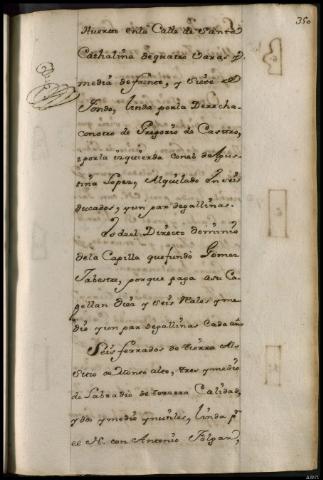 350
Huerto en la Calle de Santa
Cathalina de quatro varas y
media de frente, y siete de
fondo, linda por la Derecha
con otro de Gregorio de Castro,
y por la izquierda con el de Agus-
tina Lopez, Alquilado en seis
ducados, y un par de gallinas.
Es del Directo dominio
de la Capilla que fundó Gomez
Tabeste, porque paga a su Ca-
pellan diez y seis Reales y me-
dio y un par de gallinas Cada año
Seis ferrados de tierra Al
Sitio de Monte alto, tres y medio
de Labradio de tercera Calidad,
y dos y medio ynutiles, linda pr
el N. con Antonio Folgar,